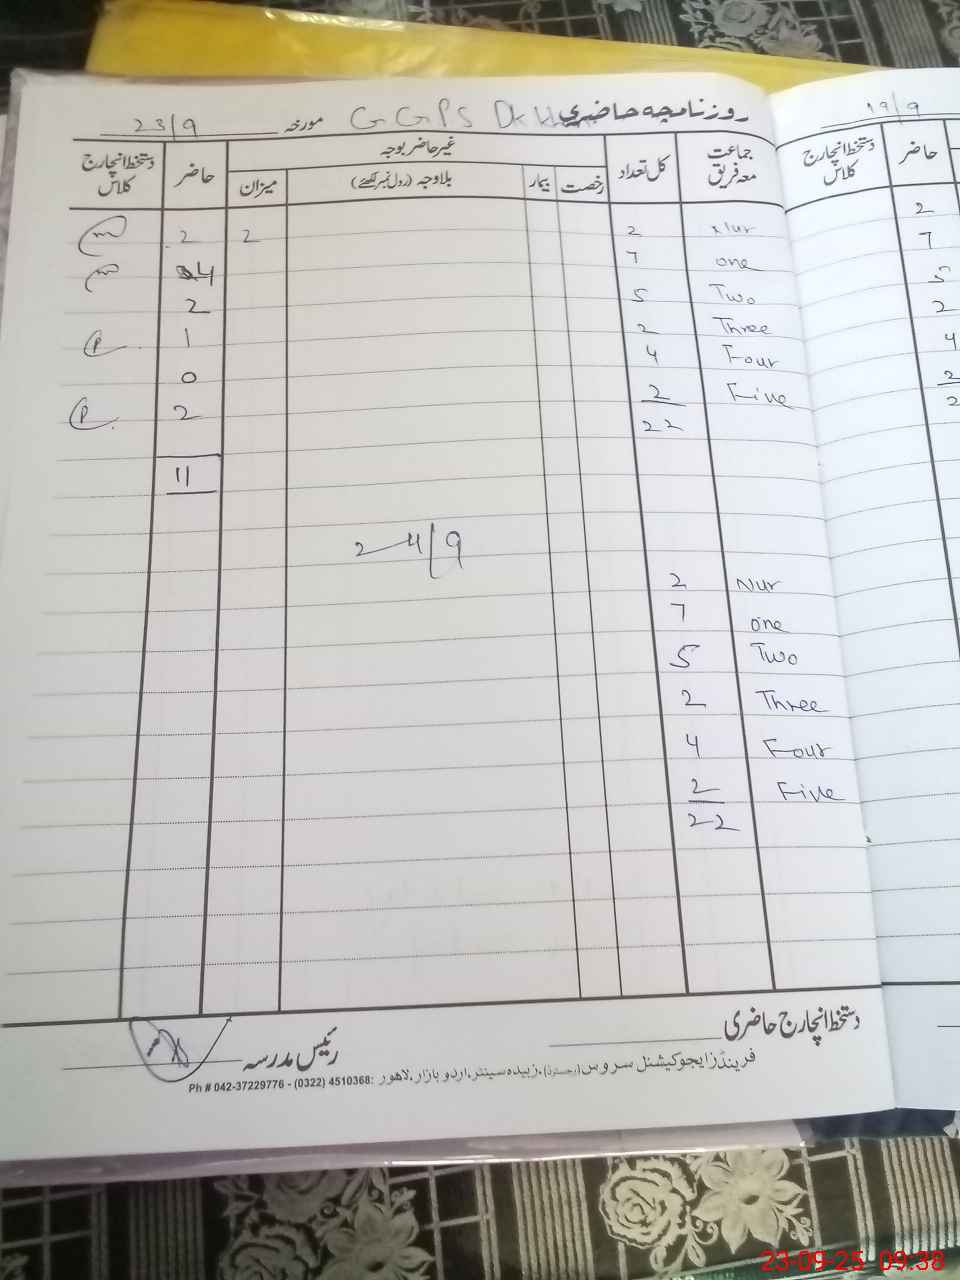 روزنامچہ حاضری G G P S مورخہ 23/9
جماعت معہ فریق کل تعداد غیر حاضر بوجہ حاضر دستخط انچارج کلاس
رخصت بیمار بلاوجہ (رول نمبر لکھئے) میزان
Nur 2 2 2
one 7 4
Two 5 2
Three 2 1
Four 4 0
Five 2 2
22 11
24/9
Nur 2
one 7
Two 5
Three 2
Four 4
Five 2
22
دستخط انچارج حاضری
رئیس مدرسہ
فرینڈز ایجوکیشنل سروس (رجسٹرڈ)، زبیدہ سینٹر، اردو بازار، لاہور Ph # 042-37229776 - (0322) 4510368:
19/9
حاضر دستخط انچارج کلاس
2
7
5
2
4
2
2
23-09-25 09:38